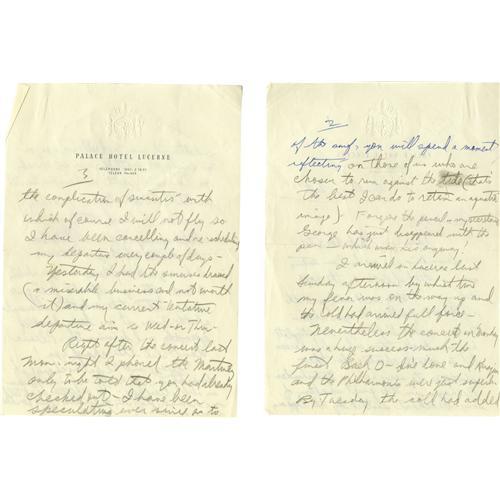 PALACE HOTEL LUCERNE
TELEPHONE
TELEX PALACE
3
the complication of sinusitis with
which of course I will not fly so
I have been cancelling and re-scheduling
my departure every couple of days -
Yesterday I had the sinuses drained
(a miserable business and not worth
it) and my current tentative
departure aim is Wed. or Thur.
Right after the concert last
Mon. night I phoned the
only to be told that you had already
checked out - I have been
speculating ever since as to
2
of the song, you will spend a moment
reflecting on those of us who are
chosen to run against the tide (that's
the best I can do to retain an aquatic
image) Forgive the pencil - mysterious
George has just disappeared with the
pen - which was his anyway!
I arrived in Lucerne last
Sunday afternoon by which time
my fever was on the way up and
the cold had arrived full force -
Nevertheless the concert on Monday
was a huge success - much the
finest Bach D - I've done and Karajan
and the Philharmonia were just superb.
By Tuesday the cold had added